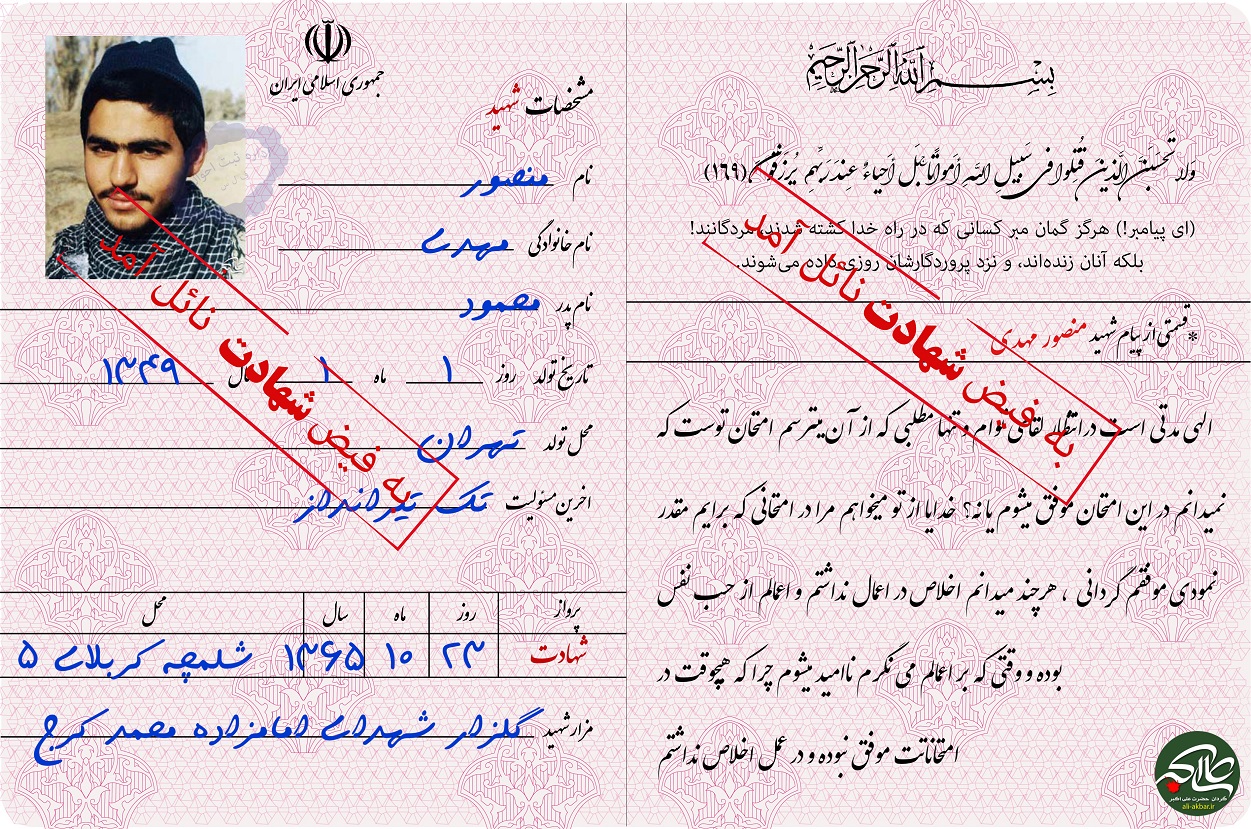 بسم الله الرحمن الرحیم
وَلا تَحْسَبَنَّ الَّذينَ قُتِلوا فى سَبيلِ اللَّهِ أمواتًا بَلْ أحياءٌ عِندَ رَبِّهِم يُرزَقونَ (١٦٩)
(ای پیامبر!) هرگز گمان مبر کسانی که در راه خدا کشته شدند، مردگانند!
بلکه آنان زنده‌اند، و نزد پروردگارشان روزی داده می‌شوند.
* قسمتی از پیام شهید منصور مهدی
الهی مدتی است در انتظار لقای توام و تنها مطلبی که از آن میترسم امتحان توست که
نمیدانم در این امتحان موفق میشوم یا نه؟ خدایا از تو میخواهم مرا در امتحانی که برایم مقدر
نمودی موفقم گردانی ، هرچند میدانم اخلاص در اعمال نداشتم و اعمالم از حب نفس
بوده و وقتی که بر اعمالم می نگرم ناامید میشوم چرا که هیچوقت در
امتحاناتت موفق نبوده و در عمل اخلاص نداشتم
به فیض شهادت نائل آمد
گردان حضرت علی اکبر
ali-akbar.ir
جمهوری اسلامی ایران
مشخصات شهید
نام منصور
نام خانوادگی مهدی
نام پدر محمود
تاریخ تولد روز ۱ ماه ۱ سال ۱۳۴۹
محل تولد تهران
آخرین مسئولیت تک تیرانداز
به فیض شهادت نائل آمد
پرواز روز ماه سال محل
شهادت ۲۳ ۱۰ ۱۳۶۵ شلمچه کربلای ۵
مزار شهید گلزار شهدای امامزاده محمد کرج